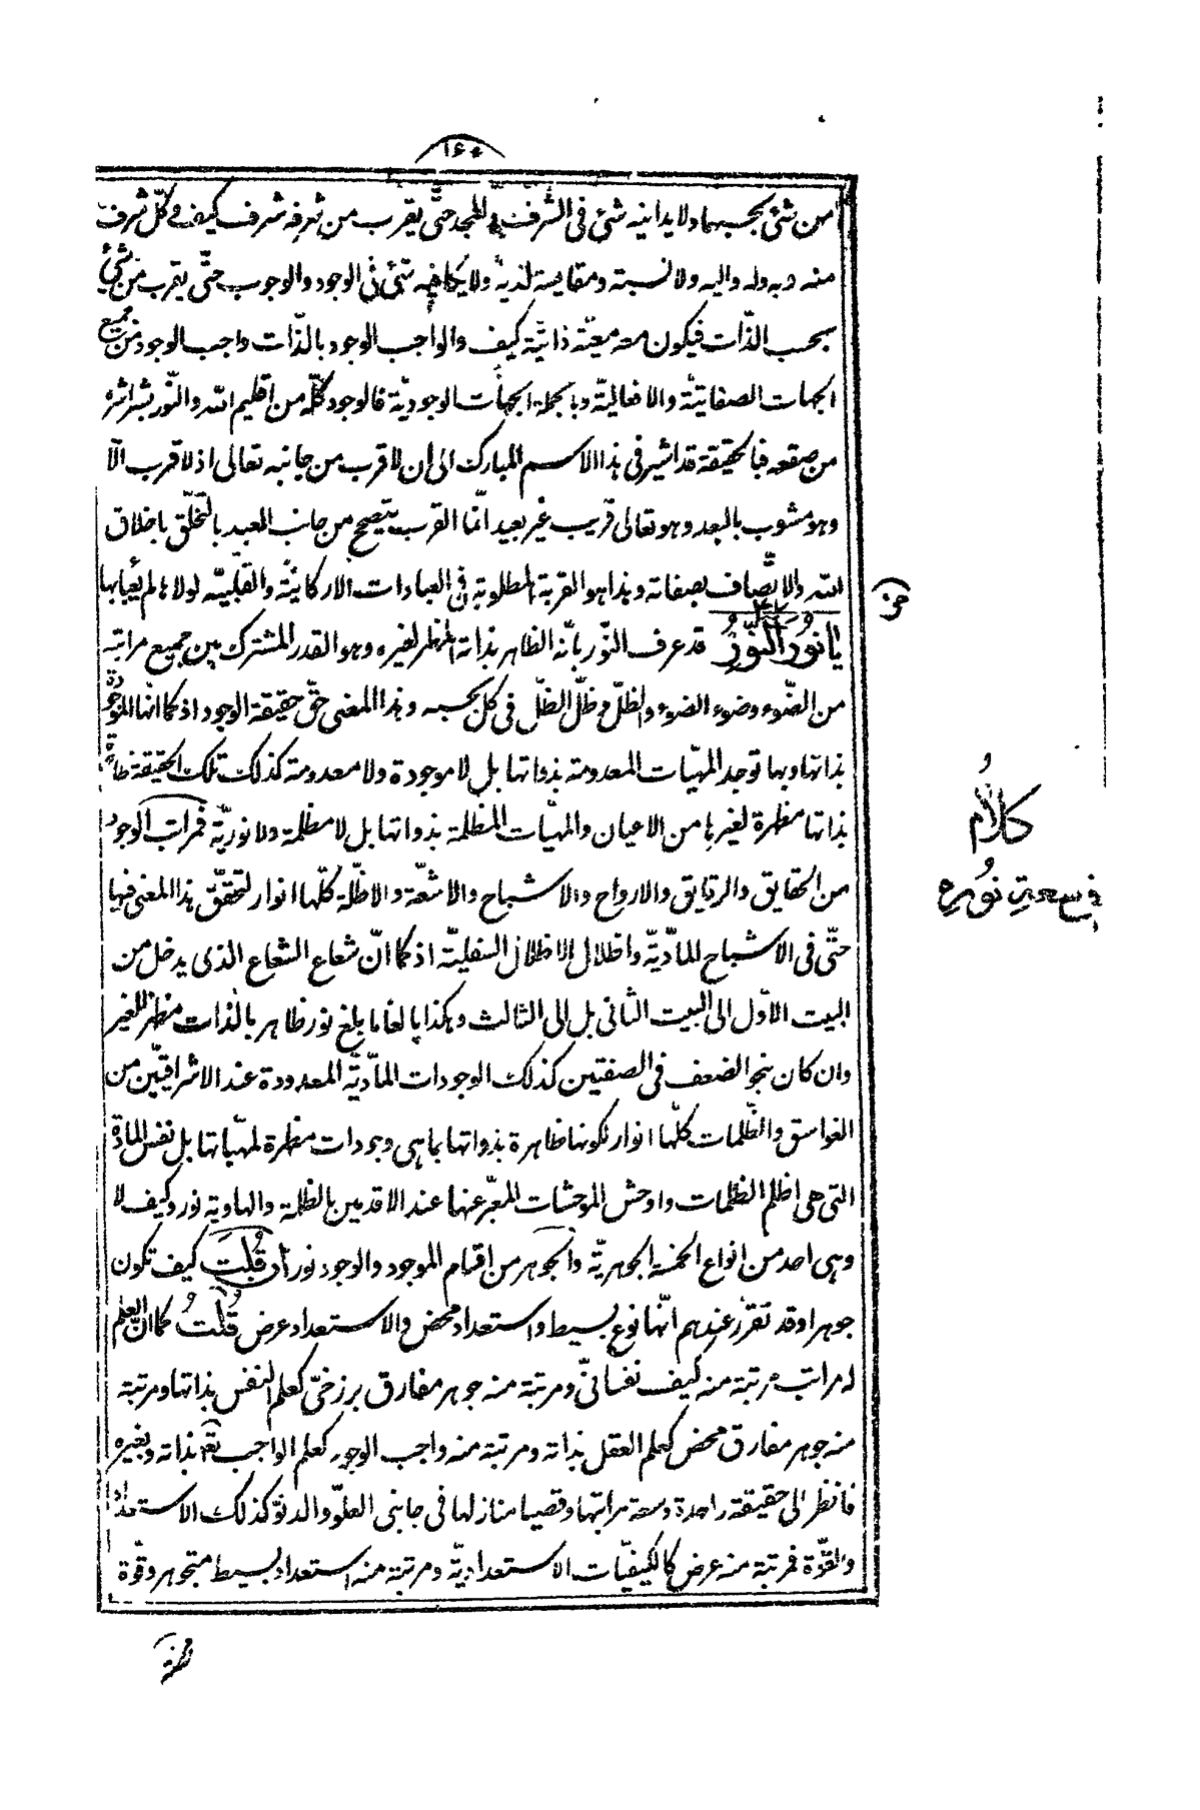 ١٦٠
من شئ بحسبهما ولا يدانيه شئ فى الشرف و المجد حتّى يقرب من شرفه شرف كيف و كلّ شرف
منه وبه وله واليه ولا نسبة ومقايسة لديه ولا يكافيه شئ فى الوجود والوجوب حتّى يقرب من شئ
بحسب الذّات فيكون معه معيّة ذاتيّة كيف والواجب الوجود بالذّات واجب الوجود من جميع
الجهات الصفاتيّة والافعاليّة وبالجملة الجهات الوجوديّة فالوجود كلّه من اقليم الله والنّور بشراشره
من صقعه فبالحقيقة قد اشير فى هذا الاسم المبارك الى ان لا قرب من جانبه تعالى اذ لا قرب الّا
وهو مشوب بالبعد وهو تعالى قريب غير بعيد انّما القرب يتصحح من جانب العبد بالتخلّق باخلاق
الله والاتّصاف بصفاته وهذا هو القربة المطلوبة فى العبادات الاركانيّة والقلبيّة لولاها لم يعبأ بها
يا نُورَ النُّورِ قد عرف النّور بانّه الظاهر بذاته المظهر لغيره وهو القدر المشترك بين جميع مراتبه
من الضّوء وضوء الضوء والظلّ و ظلّ الظلّ فى كلّ بحسبه وهذا المعنى حقّ حقيقة الوجود اذ كما انّها الموجودة
بذاتها وبها توجد المهيّات المعدومة بذواتها بل لا موجودة ولا معدومة كذلك تلك الحقيقة ظاهرة
بذاتها مظهرة لغيرها من الاعيان والمهيّات المظلمة بذواتها بل لا مظلمة ولا نوريّة فمراتب الوجود
من الحقايق والرقايق والارواح والاشباح والاشعّة والاظلّة كلّها انوار لتحقّق هذا المعنى فيها
حتّى فى الاشباح المادّيّة واظلال الاظلال السفليّة اذ كما انّ شعاع الشعاع الذى يدخل من
البيت الاوّل الى البيت الثانى بل الى الثالث وهكذا بالغا ما بلغ نور ظاهر بالذات مظهر للغير
وان كان بنحو الضعف فى الصفتين كذلك الوجودات المادّيّة المعدودة عند الاشراقيّين من
الغواسق والظّلمات كلّها انوار لكونها ظاهرة بذواتها بما هى وجودات مظهرة لمهيّاتها بل نفس المادّة
التى هى اظلم الظلمات واوحش الموحشات المعبّر عنها عند الاقدمين بالظلمة والهاوية نور وكيف لا
وهى احد من انواع الخمسة الجوهريّة والجوهر من اقسام الموجود والوجود نور فان قُلتَ كيف تكون
جوهرا وقد تقرّر عندهم انّها نوع بسيط واستعداد محض والاستعداد عرض قُلتُ كما انّ العلم
له مراتب مرتبة منه كيف نفسانىّ ومرتبة منه جوهر مفارق برزخىّ كعلم النفس بذاتها ومرتبة
منه جوهر مفارق محض كعلم العقل بذاته ومرتبة منه واجب الوجود كعلم الواجب تع بذاته وبغيره
فانظر الى حقيقة واحدة وسعة مراتبها وقصيا منازلها فى جانبى العلوّ والدنوّ كذلك الاستعداد
والقوّة فمرتبة منه عرض كالكيفيّات الاستعداديّة ومرتبة منه استعداد بسيط متجوهر وقوّة
كلام
فى سعة نوره